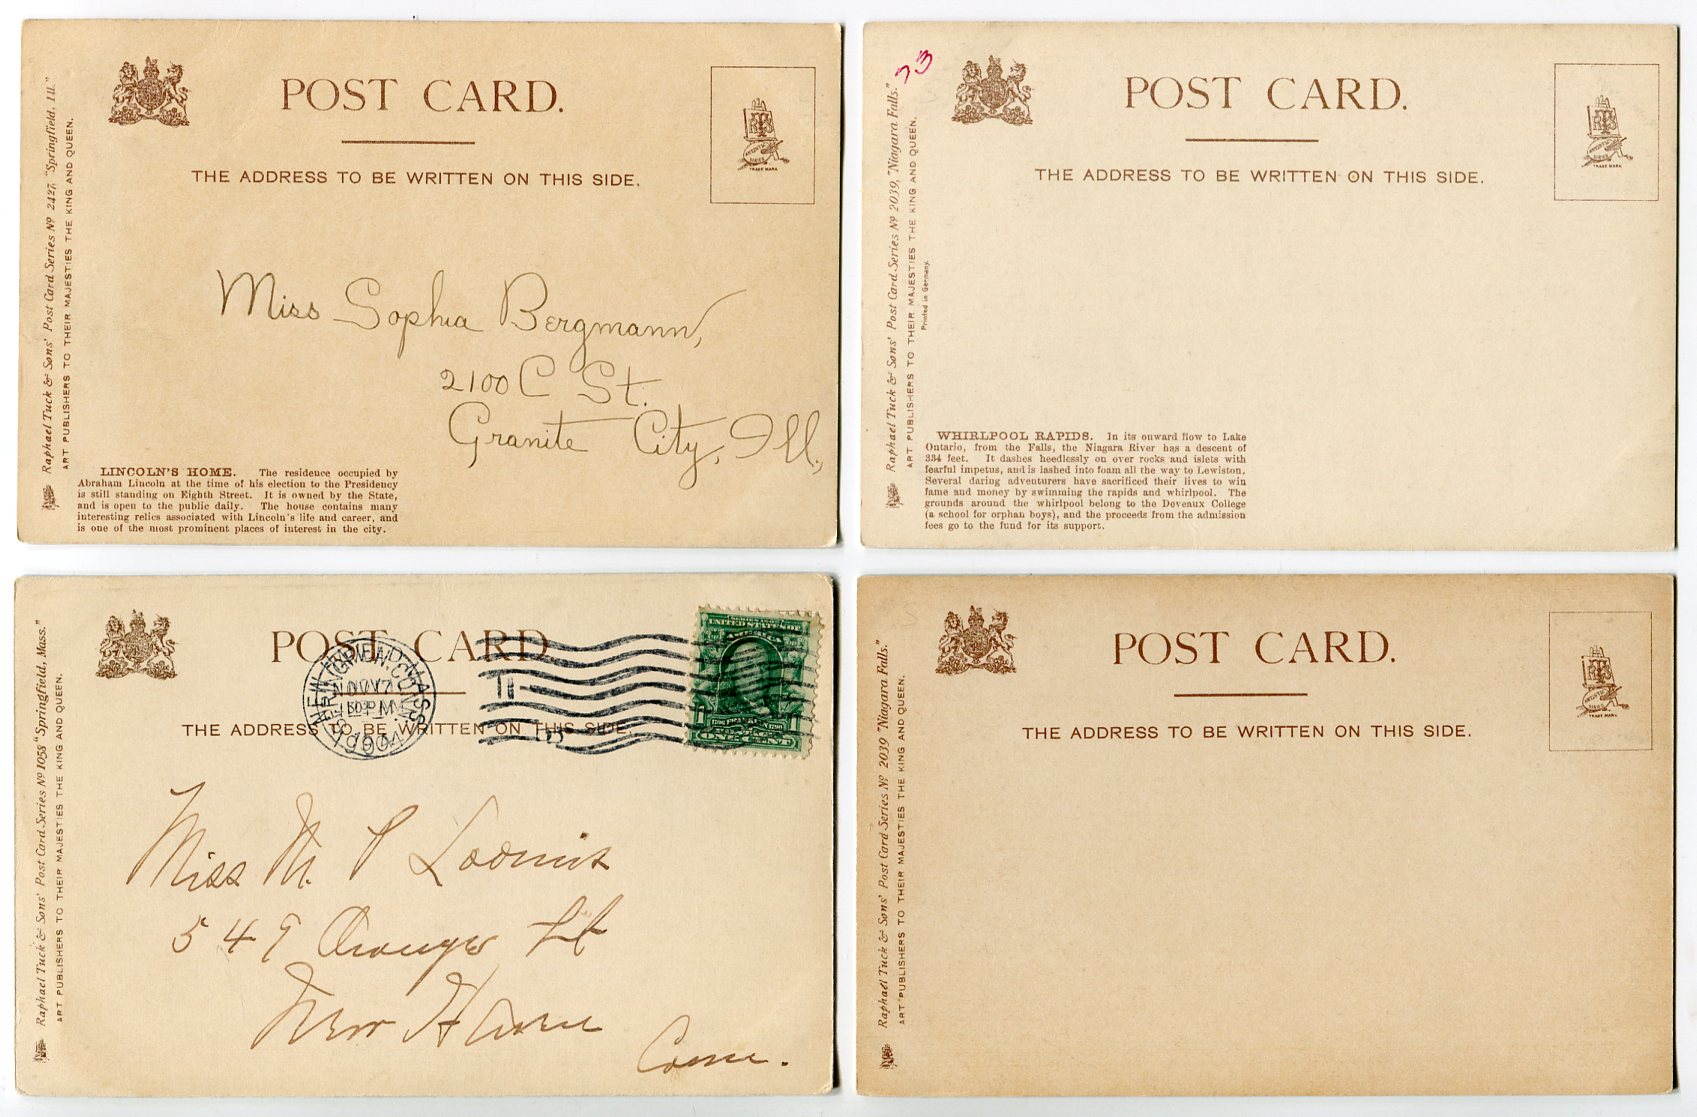 POST CARD.
THE ADDRESS TO BE WRITTEN ON THIS SIDE.
TRADE MARK
Raphael Tuck & Sons' Post Card Series Nº 2427, "Springfield, Ill."
ART PUBLISHERS TO THEIR MAJESTIES THE KING AND QUEEN.
Miss Sophia Bergmann,
2100 C St.
Granite City, Ill.,
LINCOLN'S HOME. The residence occupied by
Abraham Lincoln at the time of his election to the Presidency
is still standing on Eighth Street. It is owned by the State,
and is open to the public daily. The house contains many
interesting relics associated with Lincoln's life and career, and
is one of the most prominent places of interest in the city.
POST CARD.
THE ADDRESS TO BE WRITTEN ON THIS SIDE.
TRADE MARK
Raphael Tuck & Sons' Post Card Series Nº 2039, "Niagara Falls."
ART PUBLISHERS TO THEIR MAJESTIES THE KING AND QUEEN.
Printed in Germany.
WHIRLPOOL RAPIDS. In its onward flow to Lake
Ontario, from the Falls, the Niagara River has a descent of
334 feet. It dashes heedlessly on over rocks and islets with
fearful impetus, and is lashed into foam all the way to Lewiston.
Several daring adventurers have sacrificed their lives to win
fame and money by swimming the rapids and whirlpool. The
grounds around the whirlpool belong to the Deveaux College
(a school for orphan boys), and the proceeds from the admission
fees go to the fund for its support.
POST CARD
THE ADDRESS TO BE WRITTEN ON THIS SIDE.
Raphael Tuck & Sons' Post Card Series Nº 1058 "Springfield, Mass."
ART PUBLISHERS TO THEIR MAJESTIES THE KING AND QUEEN.
NOV 7
PM
1904
UNITED STATES OF
AMERICA
ONE CENT
Miss M. P Loomis
549 Orange St
New Haven
Conn.
POST CARD.
THE ADDRESS TO BE WRITTEN ON THIS SIDE.
TRADE MARK
Raphael Tuck & Sons' Post Card Series Nº 2039 "Niagara Falls."
ART PUBLISHERS TO THEIR MAJESTIES THE KING AND QUEEN.